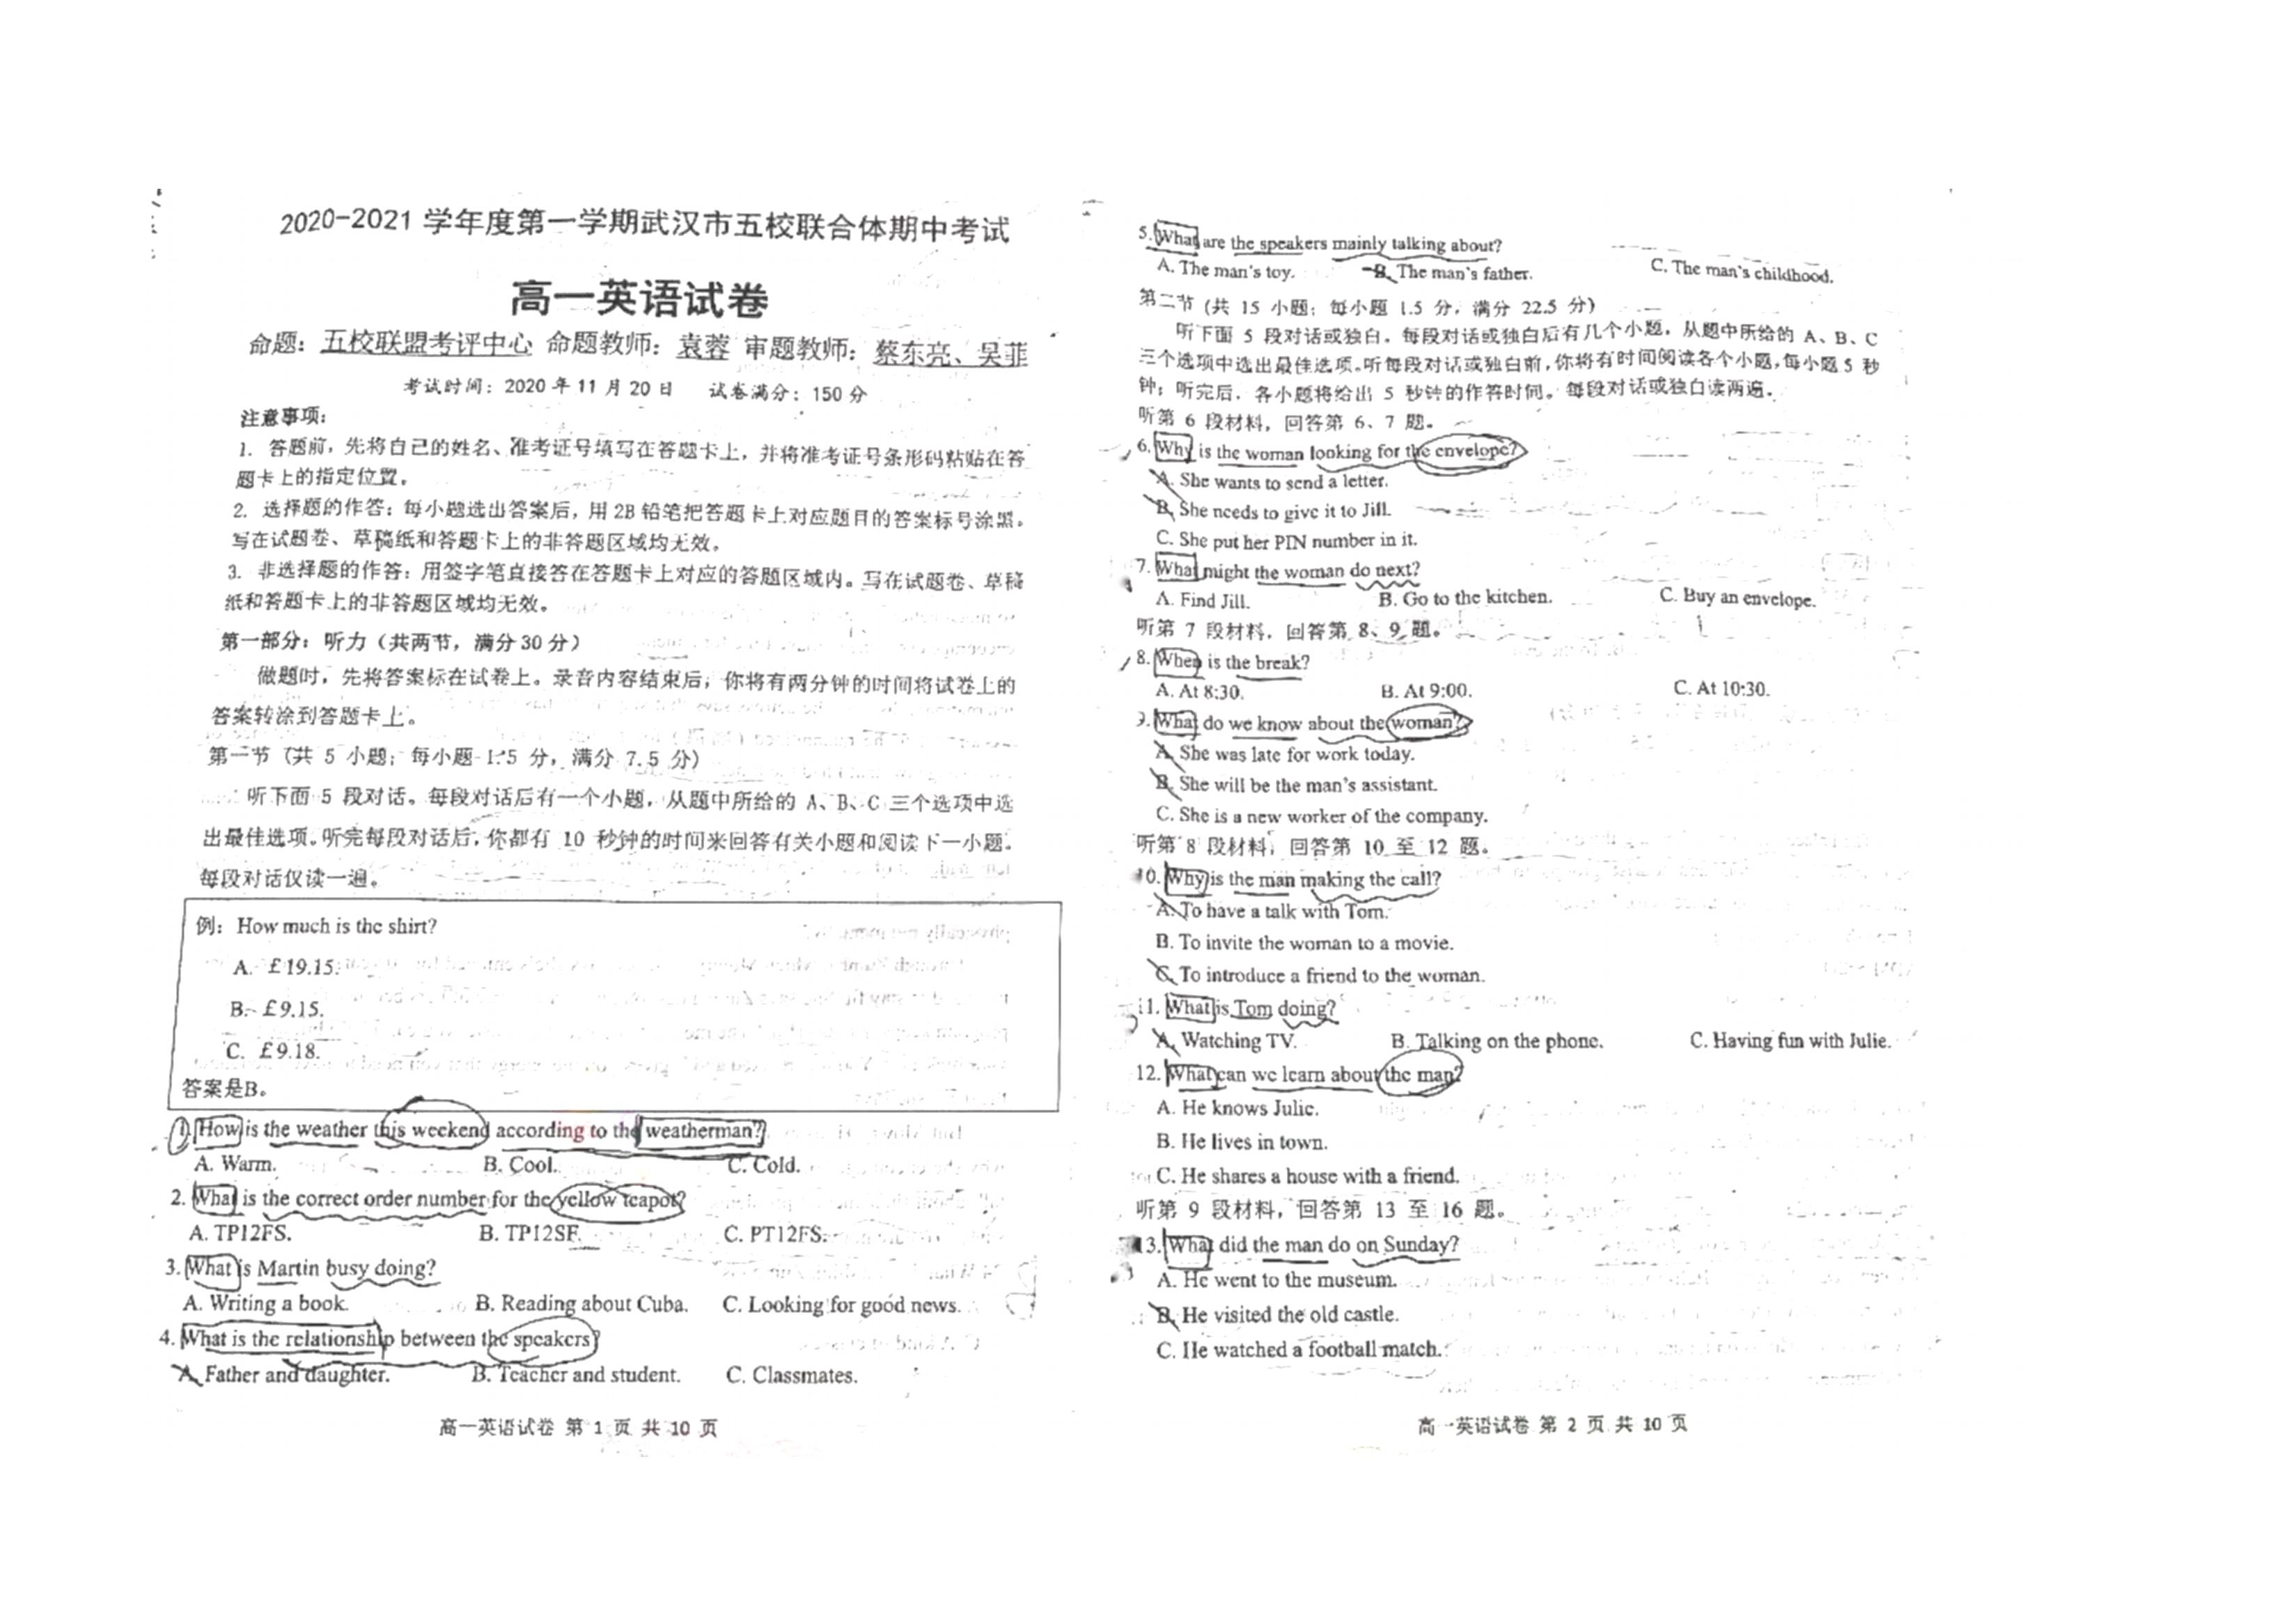 2020-2021 学年度第一学期武汉市五校联合体期中考试
高一英语试卷
命题：五校联盟考评中心 命题教师：袁蓉 审题教师：蔡东亮、吴菲
考试时间：2020 年 11 月 20 日 试卷满分：150 分
注意事项：
1. 答题前，先将自己的姓名、准考证号填写在答题卡上，并将准考证号条形码粘贴在答
题卡上的指定位置。
2. 选择题的作答：每小题选出答案后，用 2B 铅笔把答题卡上对应题目的答案标号涂黑。
写在试题卷、草稿纸和答题卡上的非答题区域均无效。
3. 非选择题的作答：用签字笔直接答在答题卡上对应的答题区域内。写在试题卷、草稿
纸和答题卡上的非答题区域均无效。
第一部分：听力（共两节，满分 30 分）
做题时，先将答案标在试卷上。录音内容结束后，你将有两分钟的时间将试卷上的
答案转涂到答题卡上。
第一节（共 5 小题；每小题 1.5 分，满分 7.5 分）
听下面 5 段对话。每段对话后有一个小题，从题中所给的 A、B、C 三个选项中选
出最佳选项。听完每段对话后，你都有 10 秒钟的时间来回答有关小题和阅读下一小题。
每段对话仅读一遍。
例：How much is the shirt?
A. £19.15.
B. £9.15.
C. £9.18.
答案是B。
1. How is the weather this weekend according to the weatherman?
A. Warm. B. Cool. C. Cold.
2. What is the correct order number for the yellow teapot?
A. TP12FS. B. TP12SF. C. PT12FS.
3. What is Martin busy doing?
A. Writing a book. B. Reading about Cuba. C. Looking for good news.
4. What is the relationship between the speakers?
A. Father and daughter. B. Teacher and student. C. Classmates.
高一英语试卷 第 1 页 共 10 页
5. What are the speakers mainly talking about?
A. The man's toy. B. The man's father. C. The man's childhood.
第二节 (共 15 小题；每小题 1.5 分，满分 22.5 分)
听下面 5 段对话或独白。每段对话或独白后有几个小题，从题中所给的 A、B、C
三个选项中选出最佳选项。听每段对话或独白前，你将有时间阅读各个小题，每小题 5 秒
钟；听完后，各小题将给出 5 秒钟的作答时间。每段对话或独白读两遍。
听第 6 段材料，回答第 6、7 题。
6. Why is the woman looking for the envelope?
A. She wants to send a letter.
B. She needs to give it to Jill.
C. She put her PIN number in it.
7. What might the woman do next?
A. Find Jill. B. Go to the kitchen. C. Buy an envelope.
听第 7 段材料，回答第 8、9 题。
8. When is the break?
A. At 8:30. B. At 9:00. C. At 10:30.
9. What do we know about the woman?
A. She was late for work today.
B. She will be the man's assistant.
C. She is a new worker of the company.
听第 8 段材料，回答第 10 至 12 题。
10. Why is the man making the call?
A. To have a talk with Tom.
B. To invite the woman to a movie.
C. To introduce a friend to the woman.
11. What is Tom doing?
A. Watching TV. B. Talking on the phone. C. Having fun with Julie.
12. What can we learn about the man?
A. He knows Julie.
B. He lives in town.
C. He shares a house with a friend.
听第 9 段材料，回答第 13 至 16 题。
13. What did the man do on Sunday?
A. He went to the museum.
B. He visited the old castle.
C. He watched a football match.
高一英语试卷 第 2 页 共 10 页